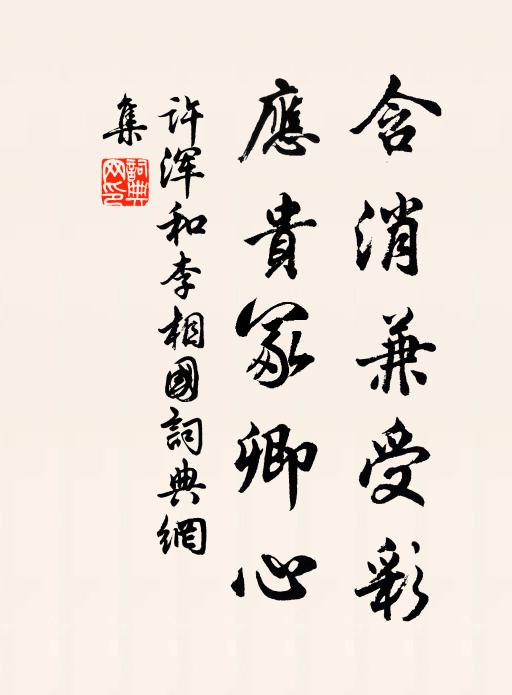 含消兼受彩
應貴冢卿心
許渾和李相國詞典網
集
詞典
网印